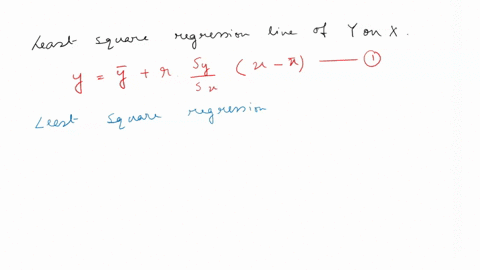 Least square regression line of Y on X.
y = ȳ + r Sy/Sx (x - x̄) —— ①
Least square regression